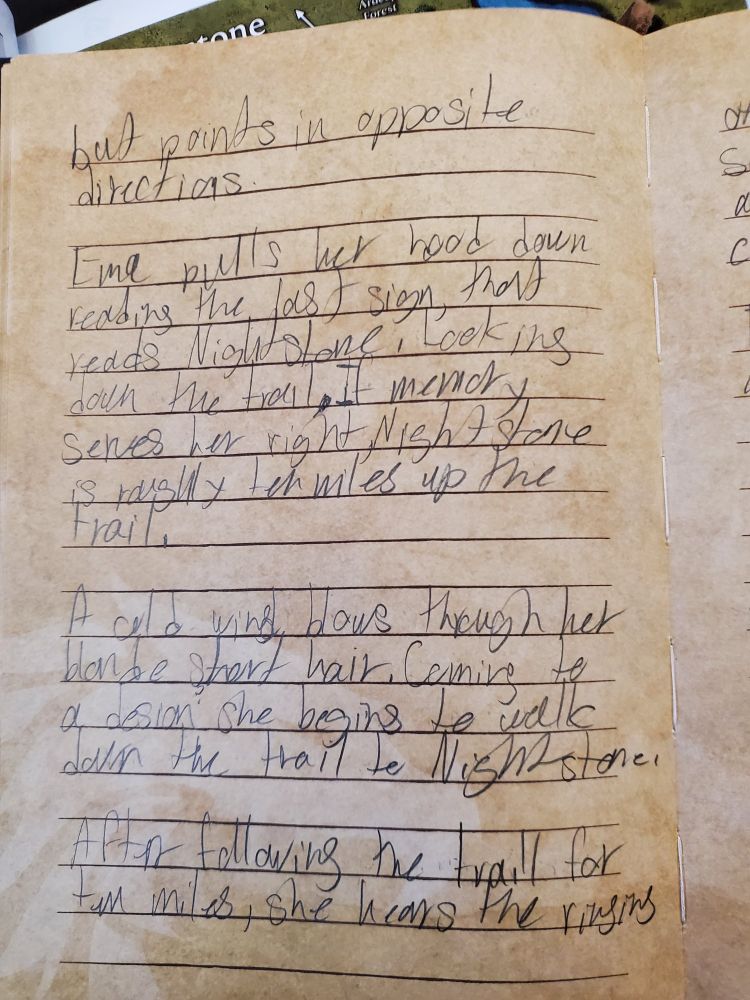 tone
Forest
but points in opposite
directions.
Ema pulls her hood down
reading the last sign, that
reads Nightstone. Looking
down the trail. If memory
serves her right, Nightstone
is roughly ten miles up the
trail.
A cold wind blows through her
blonde short hair. Coming to
a desion she begins to walk
down the trail to Nightstone.
After following the traill for
ten miles, she hears the ringing